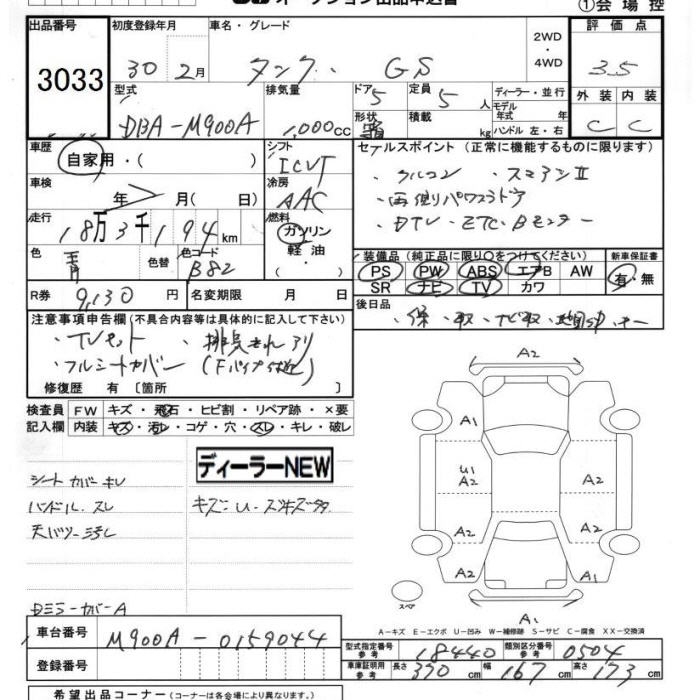 オークション出品申込書
①会場控
出品番号 初度登録年月 車名・グレード 評価点
3033 30 2月 タンク GS 2WD・4WD 3.5
型式 排気量 ドア 定員 ディーラー・並行 外装 内装
DBA-M900A 1,000cc 5 5人 モデル年式 年式 C C
形状 積載 kg ハンドル 左・右
車歴 シフト セールスポイント (正常に機能するものに限ります)
自家用・( ) ICVT ・クルコン ・スマアシⅡ
車検 年 月( 日) 冷房 AAC ・両側パワスラドア
走行 18万3千194km 燃料 ガソリン ・DTV・ETC・Bモニター
色 青 色替 色コード B82 軽油・( )
装備品 (純正品に限り○をつけてください) 新車保証書
PS PW ABS エアB AW 有・無
SR ナビ TV カワ
R券 9,130円 名変期限 月 日
後日品
・保 ・取 ・ナビ取
注意事項申告欄(不具合内容等は具体的に記入して下さい)
・TVキット ・排気きれアリ
・フルシートカバー (Fパイプ付近)
修復歴 有〔箇所 〕
検査員 FW キズ・飛石・ヒビ割・リペア跡・×要
記入欄 内装 キズ・汚レ・コゲ・穴・スレ・キレ・破レ
ディーラーNEW
シートカバーキレ
ハンドルスレ キズ・U・スリキズ多
天バリ汚レ
DミラーカバーA
A2
A1
U1
A2 A2
A2 A2
A2 A1
スペア
A1
A-キズ E-エクボ U-凹み W-補修跡 S-サビ C-腐食 XX-交換済
車台番号 M900A-0159044
型式指定番号 参考 18440 類別区分番号 参考 0504
登録番号
車庫証明用 参考 長さ 370cm 幅 167cm 高さ 173cm
希望出品コーナー(コーナーは各会場により異なります。)